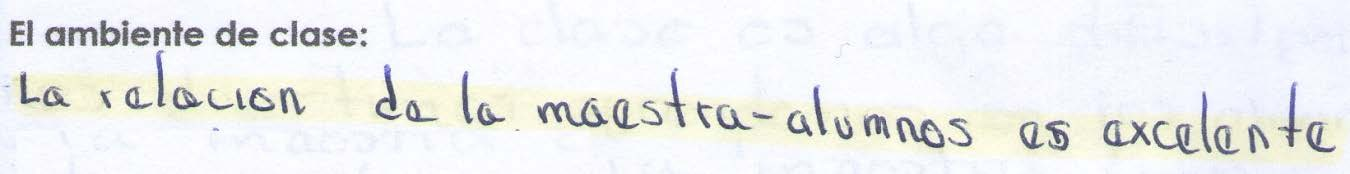 El ambiente de clase:
La relacion de la maestra-alumnos es excelente